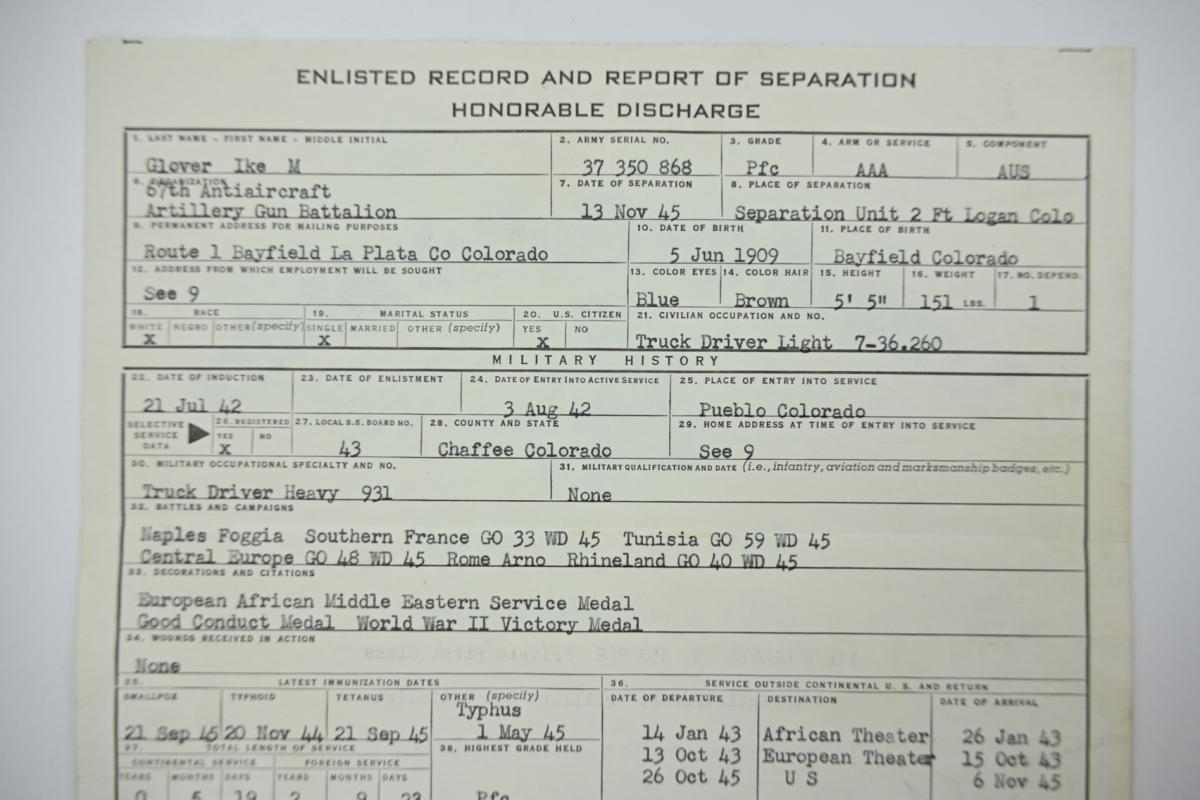 ENLISTED RECORD AND REPORT OF SEPARATION
HONORABLE DISCHARGE
1. LAST NAME - FIRST NAME - MIDDLE INITIAL 2. ARMY SERIAL NO. 3. GRADE 4. ARM OR SERVICE 5. COMPONENT
Glover Ike M 37 350 868 Pfc AAA AUS
6. ORGANIZATION 7. DATE OF SEPARATION 8. PLACE OF SEPARATION
67th Antiaircraft
Artillery Gun Battalion 13 Nov 45 Separation Unit 2 Ft Logan Colo
9. PERMANENT ADDRESS FOR MAILING PURPOSES 10. DATE OF BIRTH 11. PLACE OF BIRTH
Route 1 Bayfield La Plata Co Colorado 5 Jun 1909 Bayfield Colorado
12. ADDRESS FROM WHICH EMPLOYMENT WILL BE SOUGHT 13. COLOR EYES 14. COLOR HAIR 15. HEIGHT 16. WEIGHT 17. NO. DEPEND.
See 9 Blue Brown 5' 5" 151 LBS. 1
18. RACE 19. MARITAL STATUS 20. U.S. CITIZEN 21. CIVILIAN OCCUPATION AND NO.
WHITE NEGRO OTHER (specify) SINGLE MARRIED OTHER (specify) YES NO
X X X Truck Driver Light 7-36.260
MILITARY HISTORY
22. DATE OF INDUCTION 23. DATE OF ENLISTMENT 24. DATE OF ENTRY INTO ACTIVE SERVICE 25. PLACE OF ENTRY INTO SERVICE
21 Jul 42 3 Aug 42 Pueblo Colorado
SELECTIVE SERVICE DATA 26. REGISTERED 27. LOCAL S.S. BOARD NO. 28. COUNTY AND STATE 29. HOME ADDRESS AT TIME OF ENTRY INTO SERVICE
YES NO
X 43 Chaffee Colorado See 9
30. MILITARY OCCUPATIONAL SPECIALTY AND NO. 31. MILITARY QUALIFICATION AND DATE (i.e., infantry, aviation and marksmanship badges, etc.)
Truck Driver Heavy 931 None
32. BATTLES AND CAMPAIGNS
Naples Foggia Southern France GO 33 WD 45 Tunisia GO 59 WD 45
Central Europe GO 48 WD 45 Rome Arno Rhineland GO 40 WD 45
33. DECORATIONS AND CITATIONS
European African Middle Eastern Service Medal
Good Conduct Medal World War II Victory Medal
34. WOUNDS RECEIVED IN ACTION
None
35. LATEST IMMUNIZATION DATES 36. SERVICE OUTSIDE CONTINENTAL U. S. AND RETURN
SMALLPOX TYPHOID TETANUS OTHER (specify) DATE OF DEPARTURE DESTINATION DATE OF ARRIVAL
Typhus
21 Sep 45 20 Nov 44 21 Sep 45 1 May 45 14 Jan 43 African Theater 26 Jan 43
37. TOTAL LENGTH OF SERVICE 38. HIGHEST GRADE HELD 13 Oct 43 European Theater 15 Oct 43
CONTINENTAL SERVICE FOREIGN SERVICE 26 Oct 45 U S 6 Nov 45
YEARS MONTHS DAYS YEARS MONTHS DAYS
0 5 19 2 9 23 Pfc